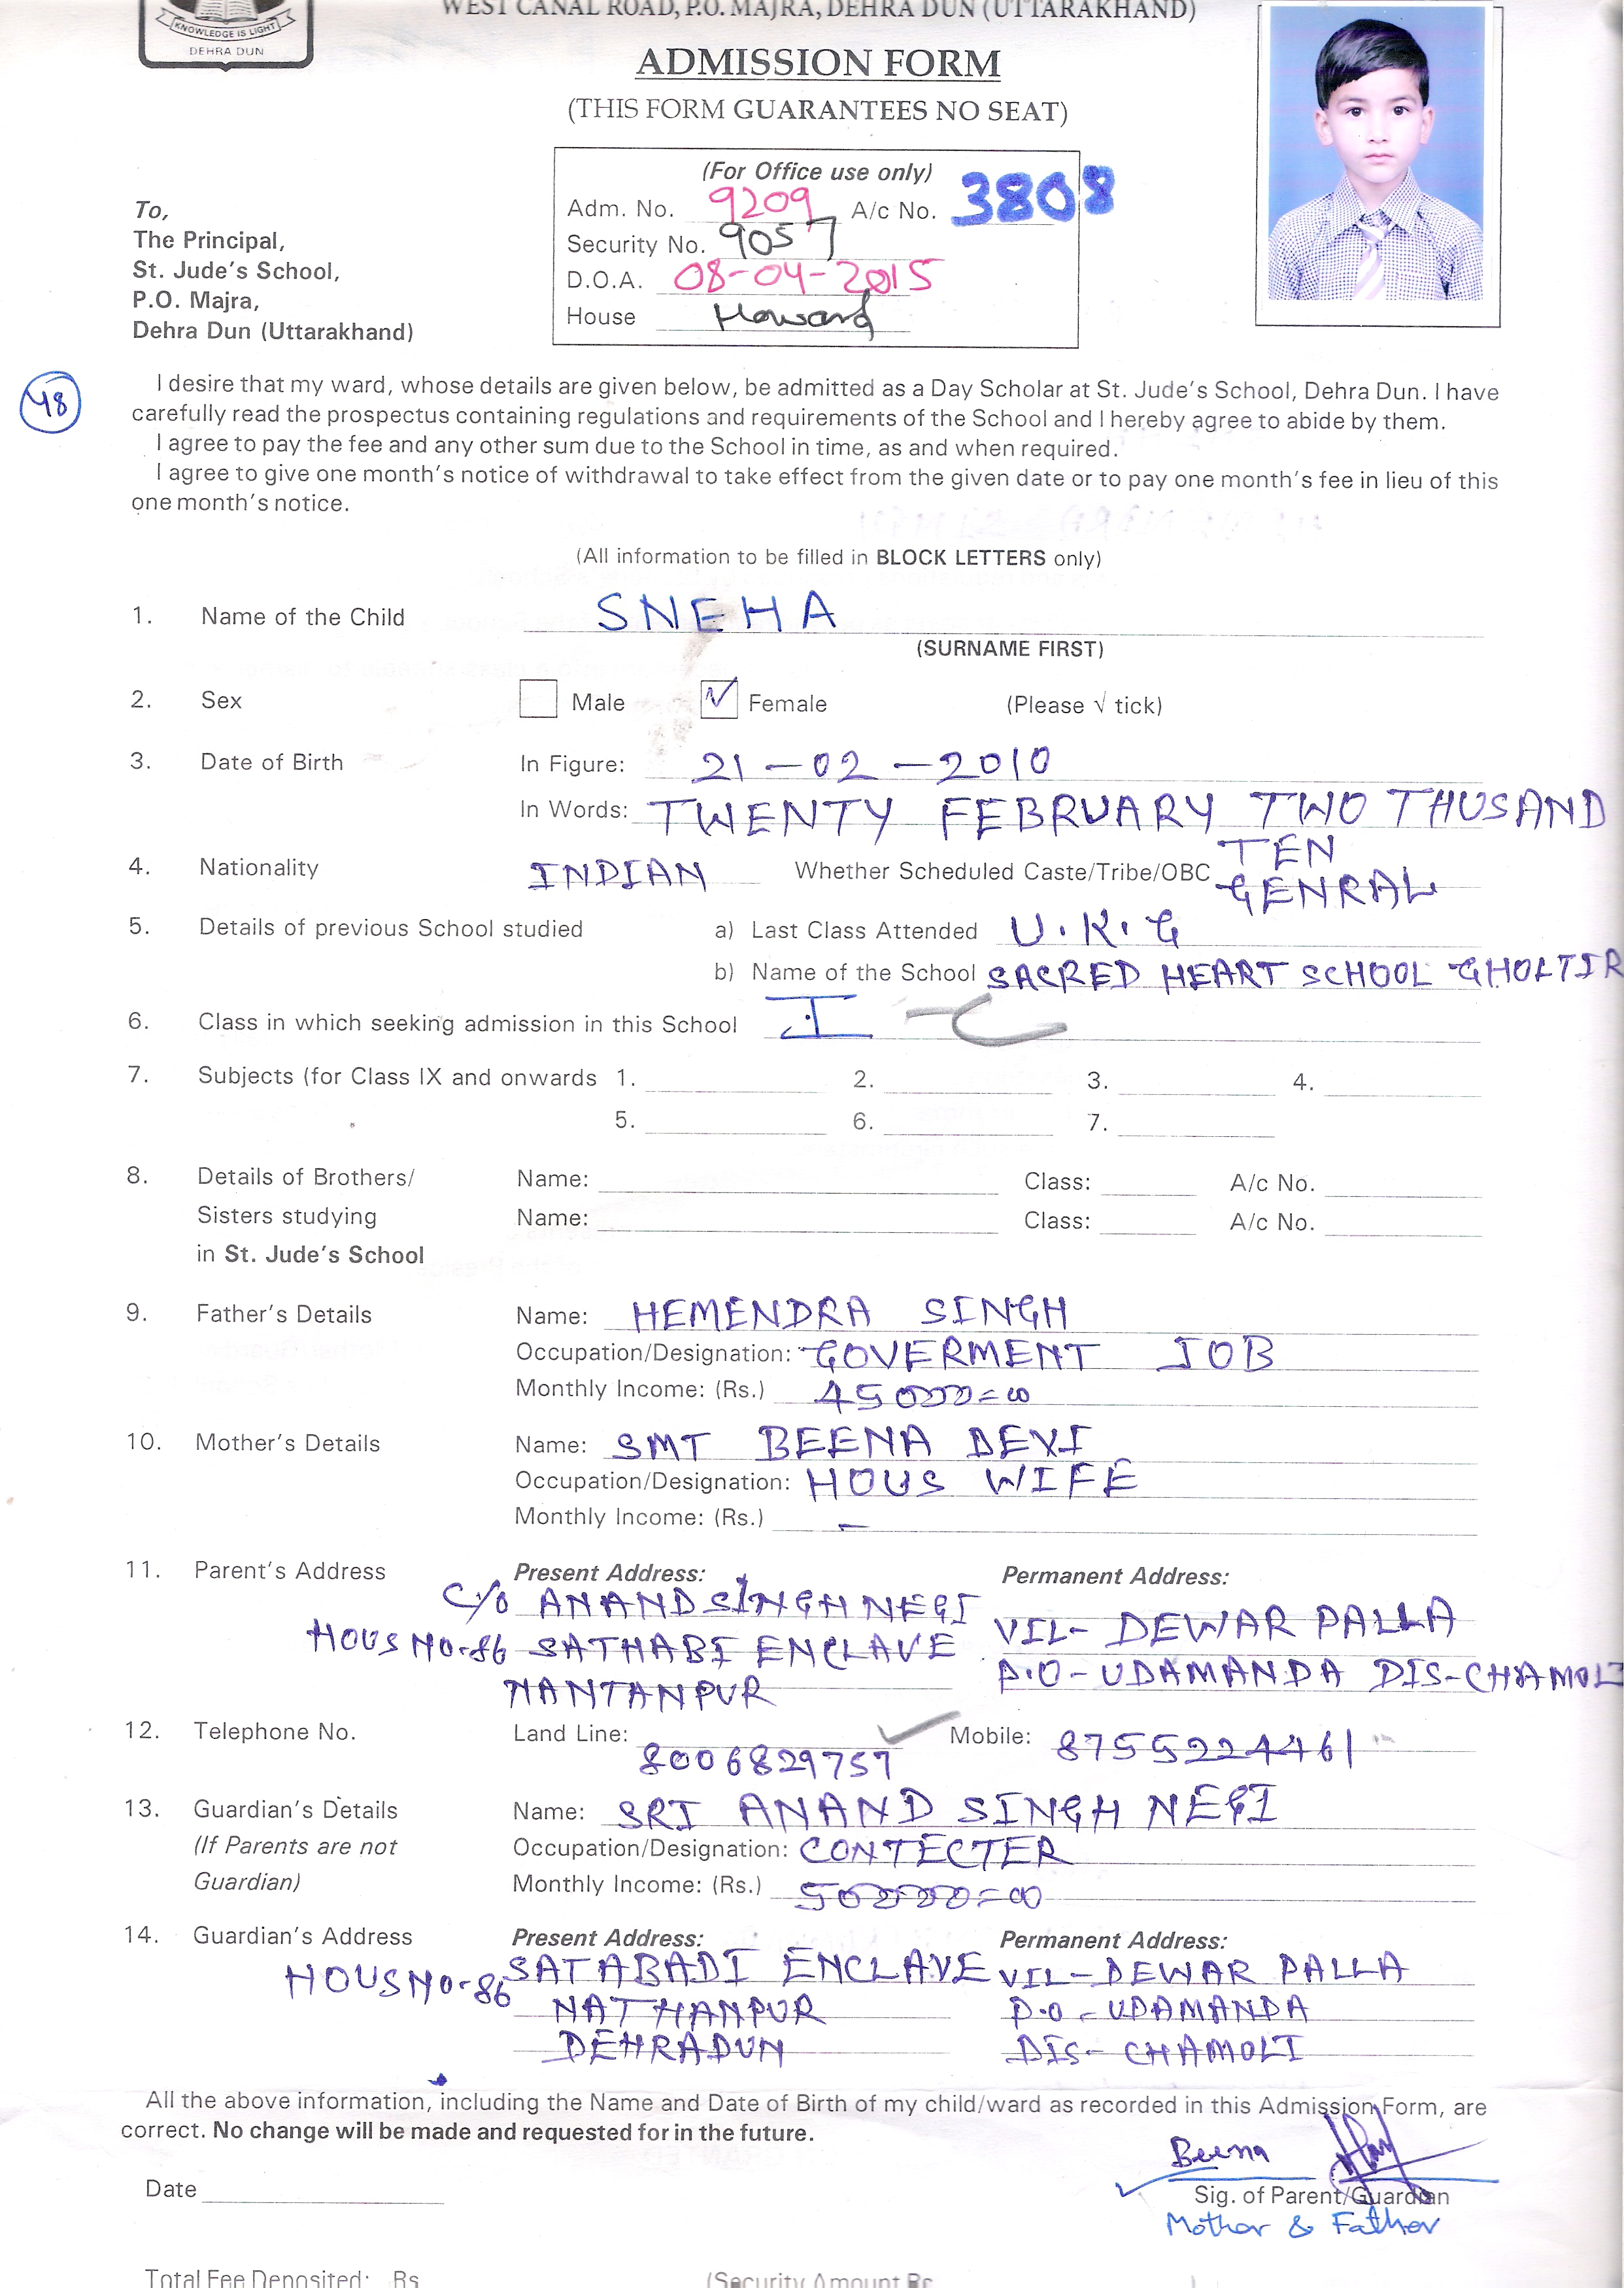 WEST CANAL ROAD, P.O. MAJRA, DEHRA DUN (UTTARAKHAND)
KNOWLEDGE IS LIGHT
DEHRA DUN
ADMISSION FORM
(THIS FORM GUARANTEES NO SEAT)
(For Office use only)
Adm. No. 9209 A/c No. 3808
Security No. 9057
D.O.A. 08-04-2015
House Howard
To,
The Principal,
St. Jude's School,
P.O. Majra,
Dehra Dun (Uttarakhand)
48
I desire that my ward, whose details are given below, be admitted as a Day Scholar at St. Jude's School, Dehra Dun. I have
carefully read the prospectus containing regulations and requirements of the School and I hereby agree to abide by them.
I agree to pay the fee and any other sum due to the School in time, as and when required.
I agree to give one month's notice of withdrawal to take effect from the given date or to pay one month's fee in lieu of this
one month's notice.
(All information to be filled in BLOCK LETTERS only)
1. Name of the Child SNEHA
(SURNAME FIRST)
2. Sex Male √ Female (Please √ tick)
3. Date of Birth In Figure: 21-02-2010
In Words: TWENTY FEBRUARY TWO THUSAND
TEN
4. Nationality INDIAN Whether Scheduled Caste/Tribe/OBC GENRAL
5. Details of previous School studied a) Last Class Attended U.K.G
b) Name of the School SACRED HEART SCHOOL GHOLTIR
6. Class in which seeking admission in this School I - C
7. Subjects (for Class IX and onwards 1. 2. 3. 4.
5. 6. 7.
8. Details of Brothers/ Name: Class: A/c No.
Sisters studying Name: Class: A/c No.
in St. Jude's School
9. Father's Details Name: HEMENDRA SINGH
Occupation/Designation: GOVERMENT JOB
Monthly Income: (Rs.) 45000=00
10. Mother's Details Name: SMT BEENA DEVI
Occupation/Designation: HOUS WIFE
Monthly Income: (Rs.) -
11. Parent's Address Present Address: Permanent Address:
C/O ANAND SINGH NEGI VIL- DEWAR PALLA
HOUS NO-86 SATHABI ENCLAVE P.O-UDAMANDA DIS-CHAMOLI
NANTANPUR
12. Telephone No. Land Line: 8006829757 Mobile: 8755224461
13. Guardian's Details Name: SRI ANAND SINGH NEGI
(If Parents are not Occupation/Designation: CONTECTER
Guardian) Monthly Income: (Rs.) 50000=00
14. Guardian's Address Present Address: Permanent Address:
HOUS NO-86 SATABADI ENCLAVE VIL-DEWAR PALLA
NATHANPUR P.O-UDAMANDA
DEHRADUN DIS- CHAMOLI
All the above information, including the Name and Date of Birth of my child/ward as recorded in this Admission Form, are
correct. No change will be made and requested for in the future.
Beena
Date Sig. of Parent/Guardian
Mother & Father
Total Fee Deposited: Rs (Security Amount Rs